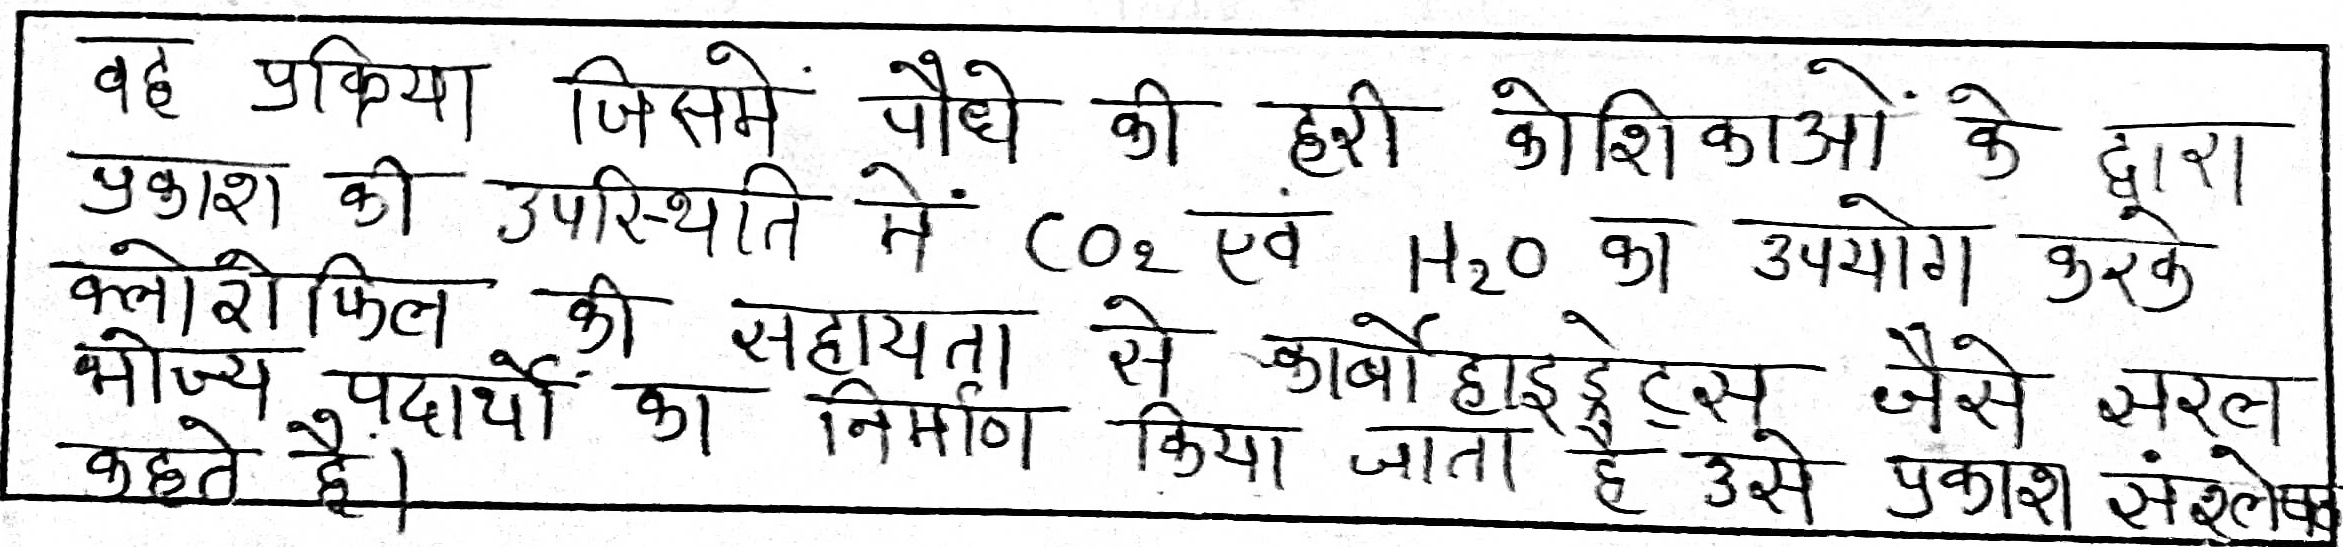 वह प्रक्रिया जिसमें पौधे की हरी कोशिकाओं के द्वारा
प्रकाश की उपस्थिति में CO₂ एवं H₂O का उपयोग करके
क्लोरोफिल की सहायता से कार्बोहाइड्रेट्स जैसे सरल
भोज्य पदार्थों का निर्माण किया जाता है उसे प्रकाश संश्लेषण
कहते हैं।